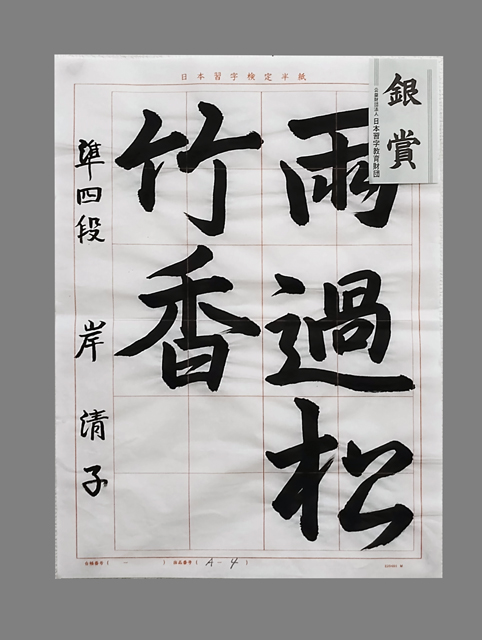 日本習字検定半紙
銀賞
公益財団法人 日本習字教育財団
雨過松
竹香
準四段 岸 清子
会員番号( - ) 出品番号( A-4 )